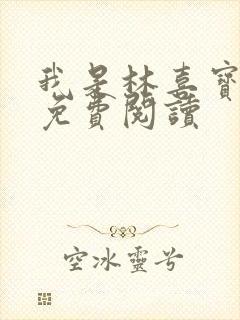 我是林喜寶
免費閱讀
空冰靈兮